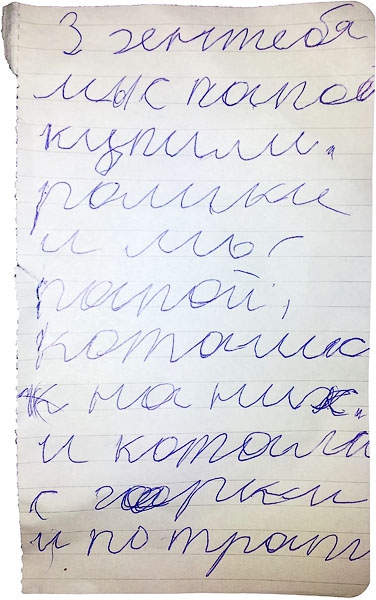 3 зентебя
мы с папой
купили.
ролики
и мы с
папой,
каталис
к на них.
и катала
с горки
и по трап